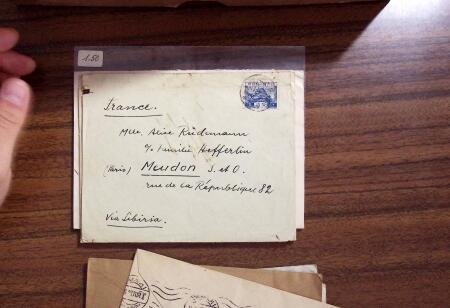 1.50
France.
Mlle. Alice Rüdemann
c/o Familie Hefferlin
(Paris) Meudon S. et O.
rue de la République 82
Via Sibiria.